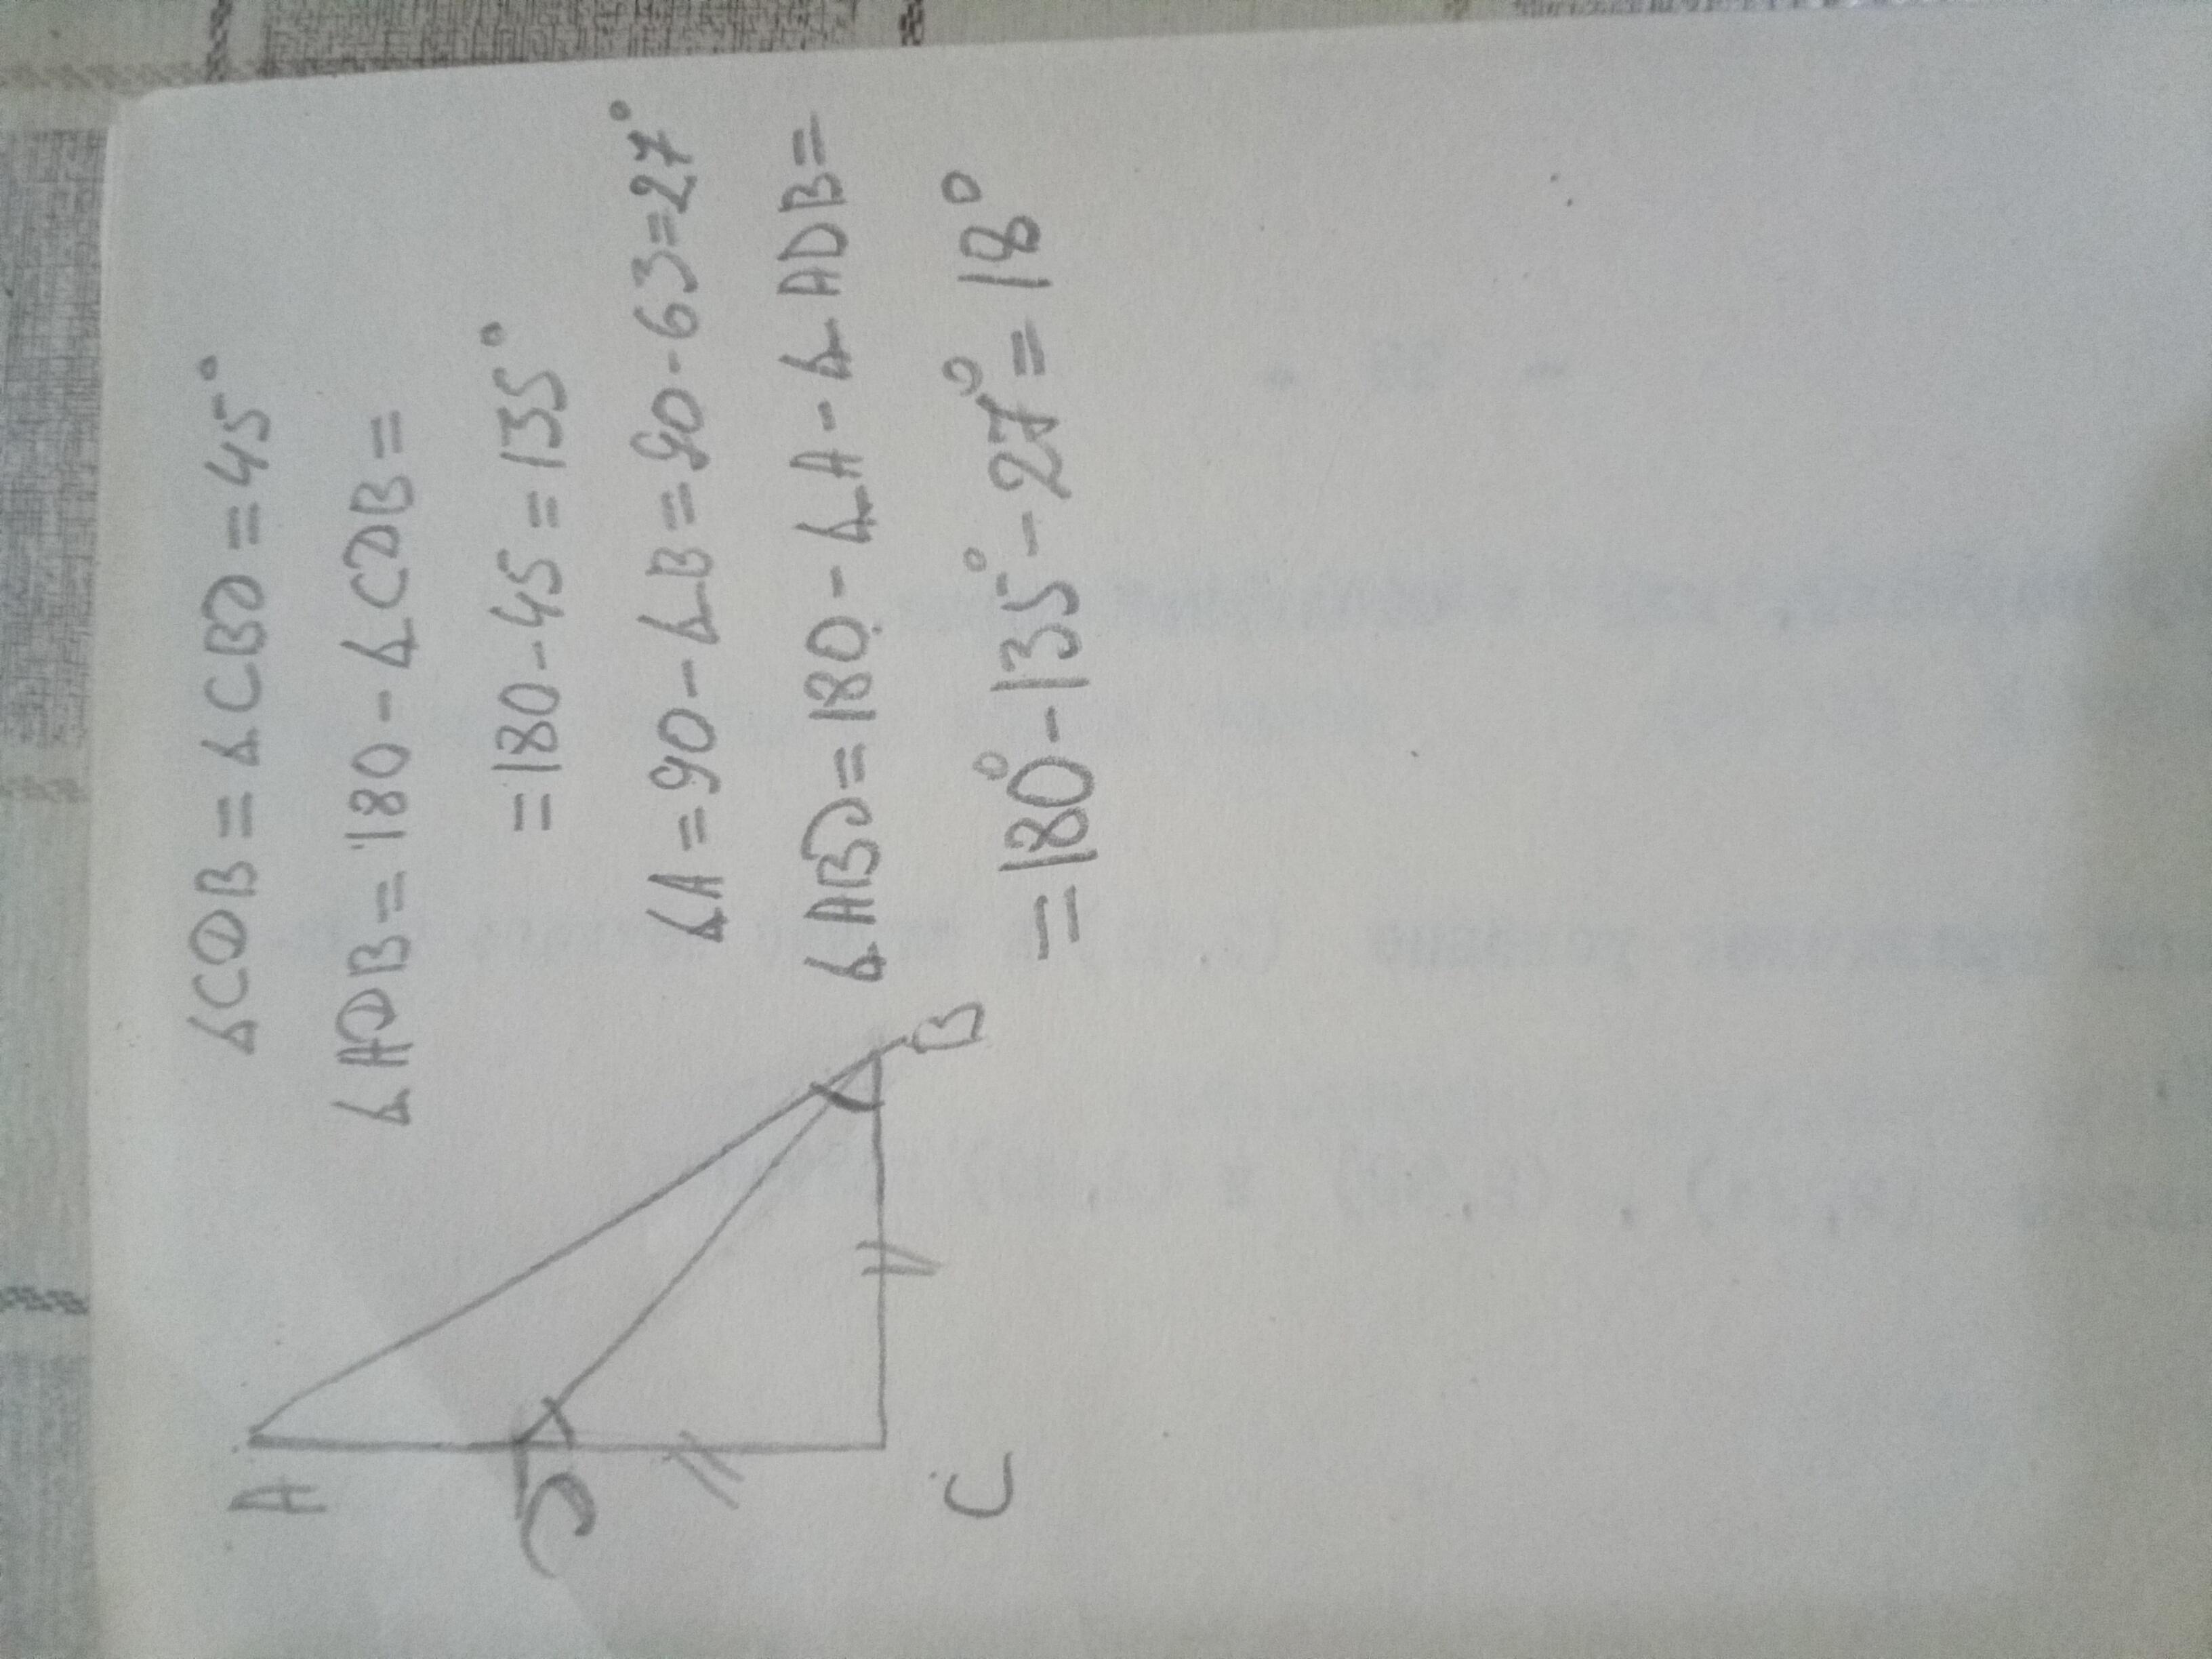 ∠CDB=∠CBD=45°
∠ADB=180-∠CDB=
=180-45=135°
∠A=90-∠B=90-63=27°
∠ABD=180-∠A-∠ADB=
=180°-135°-27°=18°
A
D
B
C